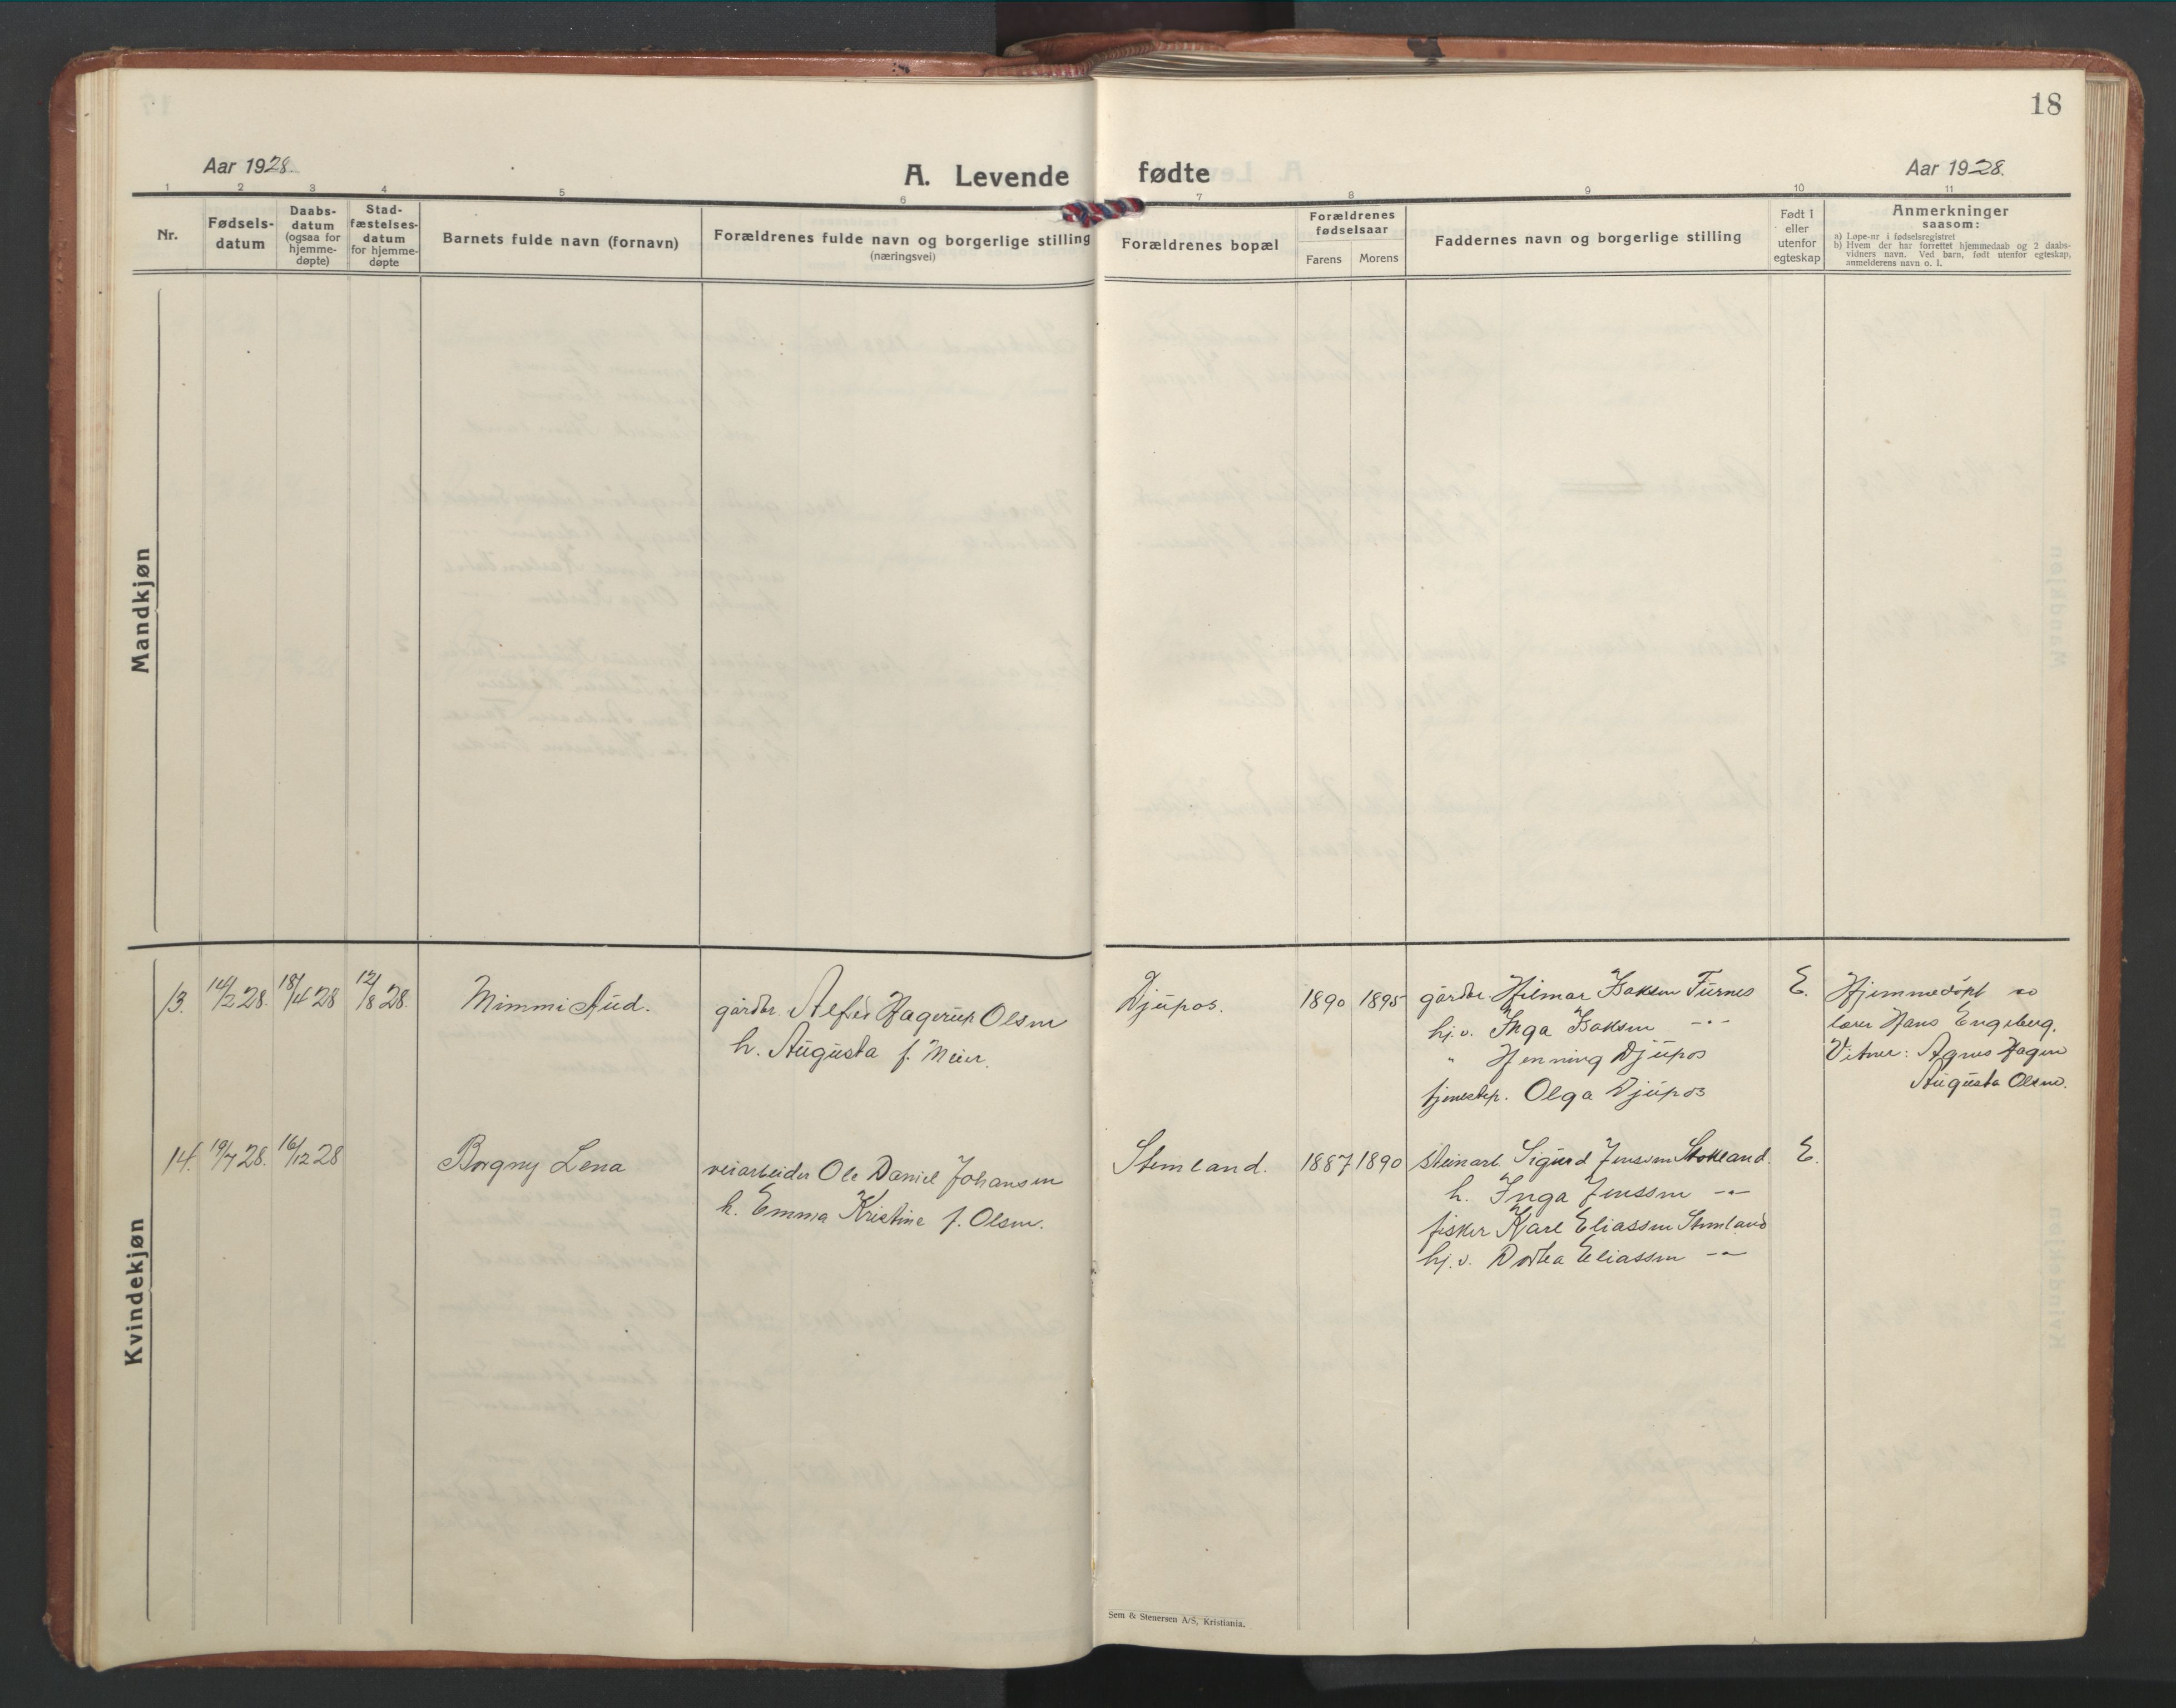 18
Aar 1928.
A. Levende fødte
Aar 1928.
1 2 3 4 5 6 7 8 9 10 11
Nr.
Fødsels-
datum
Daabs-
datum
(ogsaa for
hjemme-
døpte)
Stad-
fæstelses-
datum
for hjemme-
døpte
Barnets fulde navn (fornavn)
Forældrenes fulde navn og borgerlige stilling
(næringsvei)
Forældrenes bopæl
Forældrenes
fødselsaar
Farens Morens
Faddernes navn og borgerlige stilling
Født i
eller
utenfor
egteskap
Anmerkninger
saasom:
a) Løpe-nr i fødselsregistret
b) Hvem der har forrettet hjemmedaab og 2 daabs-
vidners navn. Ved barn, født utenfor egteskap,
anmelderens navn o. l.
Mandkjøn
Kvindekjøn
13. 14/2 28. 18/4 28 12/8 28.
Mimmi Aud.
gårdbr. Alfed Hagerup Olsen
h. Augusta f. Meier.
Djupos.
1890 1895
gårdbr Hilmar Isaksen Furnes
hj.v. Inga Isaksen -"-
" Henning Djupos
tjenestep. Olga Djupos
E.
Hjemmedöpt av
lærer Hans Engeberg.
Vitner: Agnes Hagen
Augusta Olsen.
14. 19/7 28. 16/12 28
Borgny Lena
veiarbeider Ole Daniel Johansen
h. Emma Kristine f. Olsen.
Stemland.
1887 1890
steinarb. Sigurd Jenssen Stokland.
h. Inga Jenssen -"-
fisker Karl Eliassen Stemland
hj.v. Dortea Eliassen -"-
E.
Sem & Stenersen A/S, Kristiania.